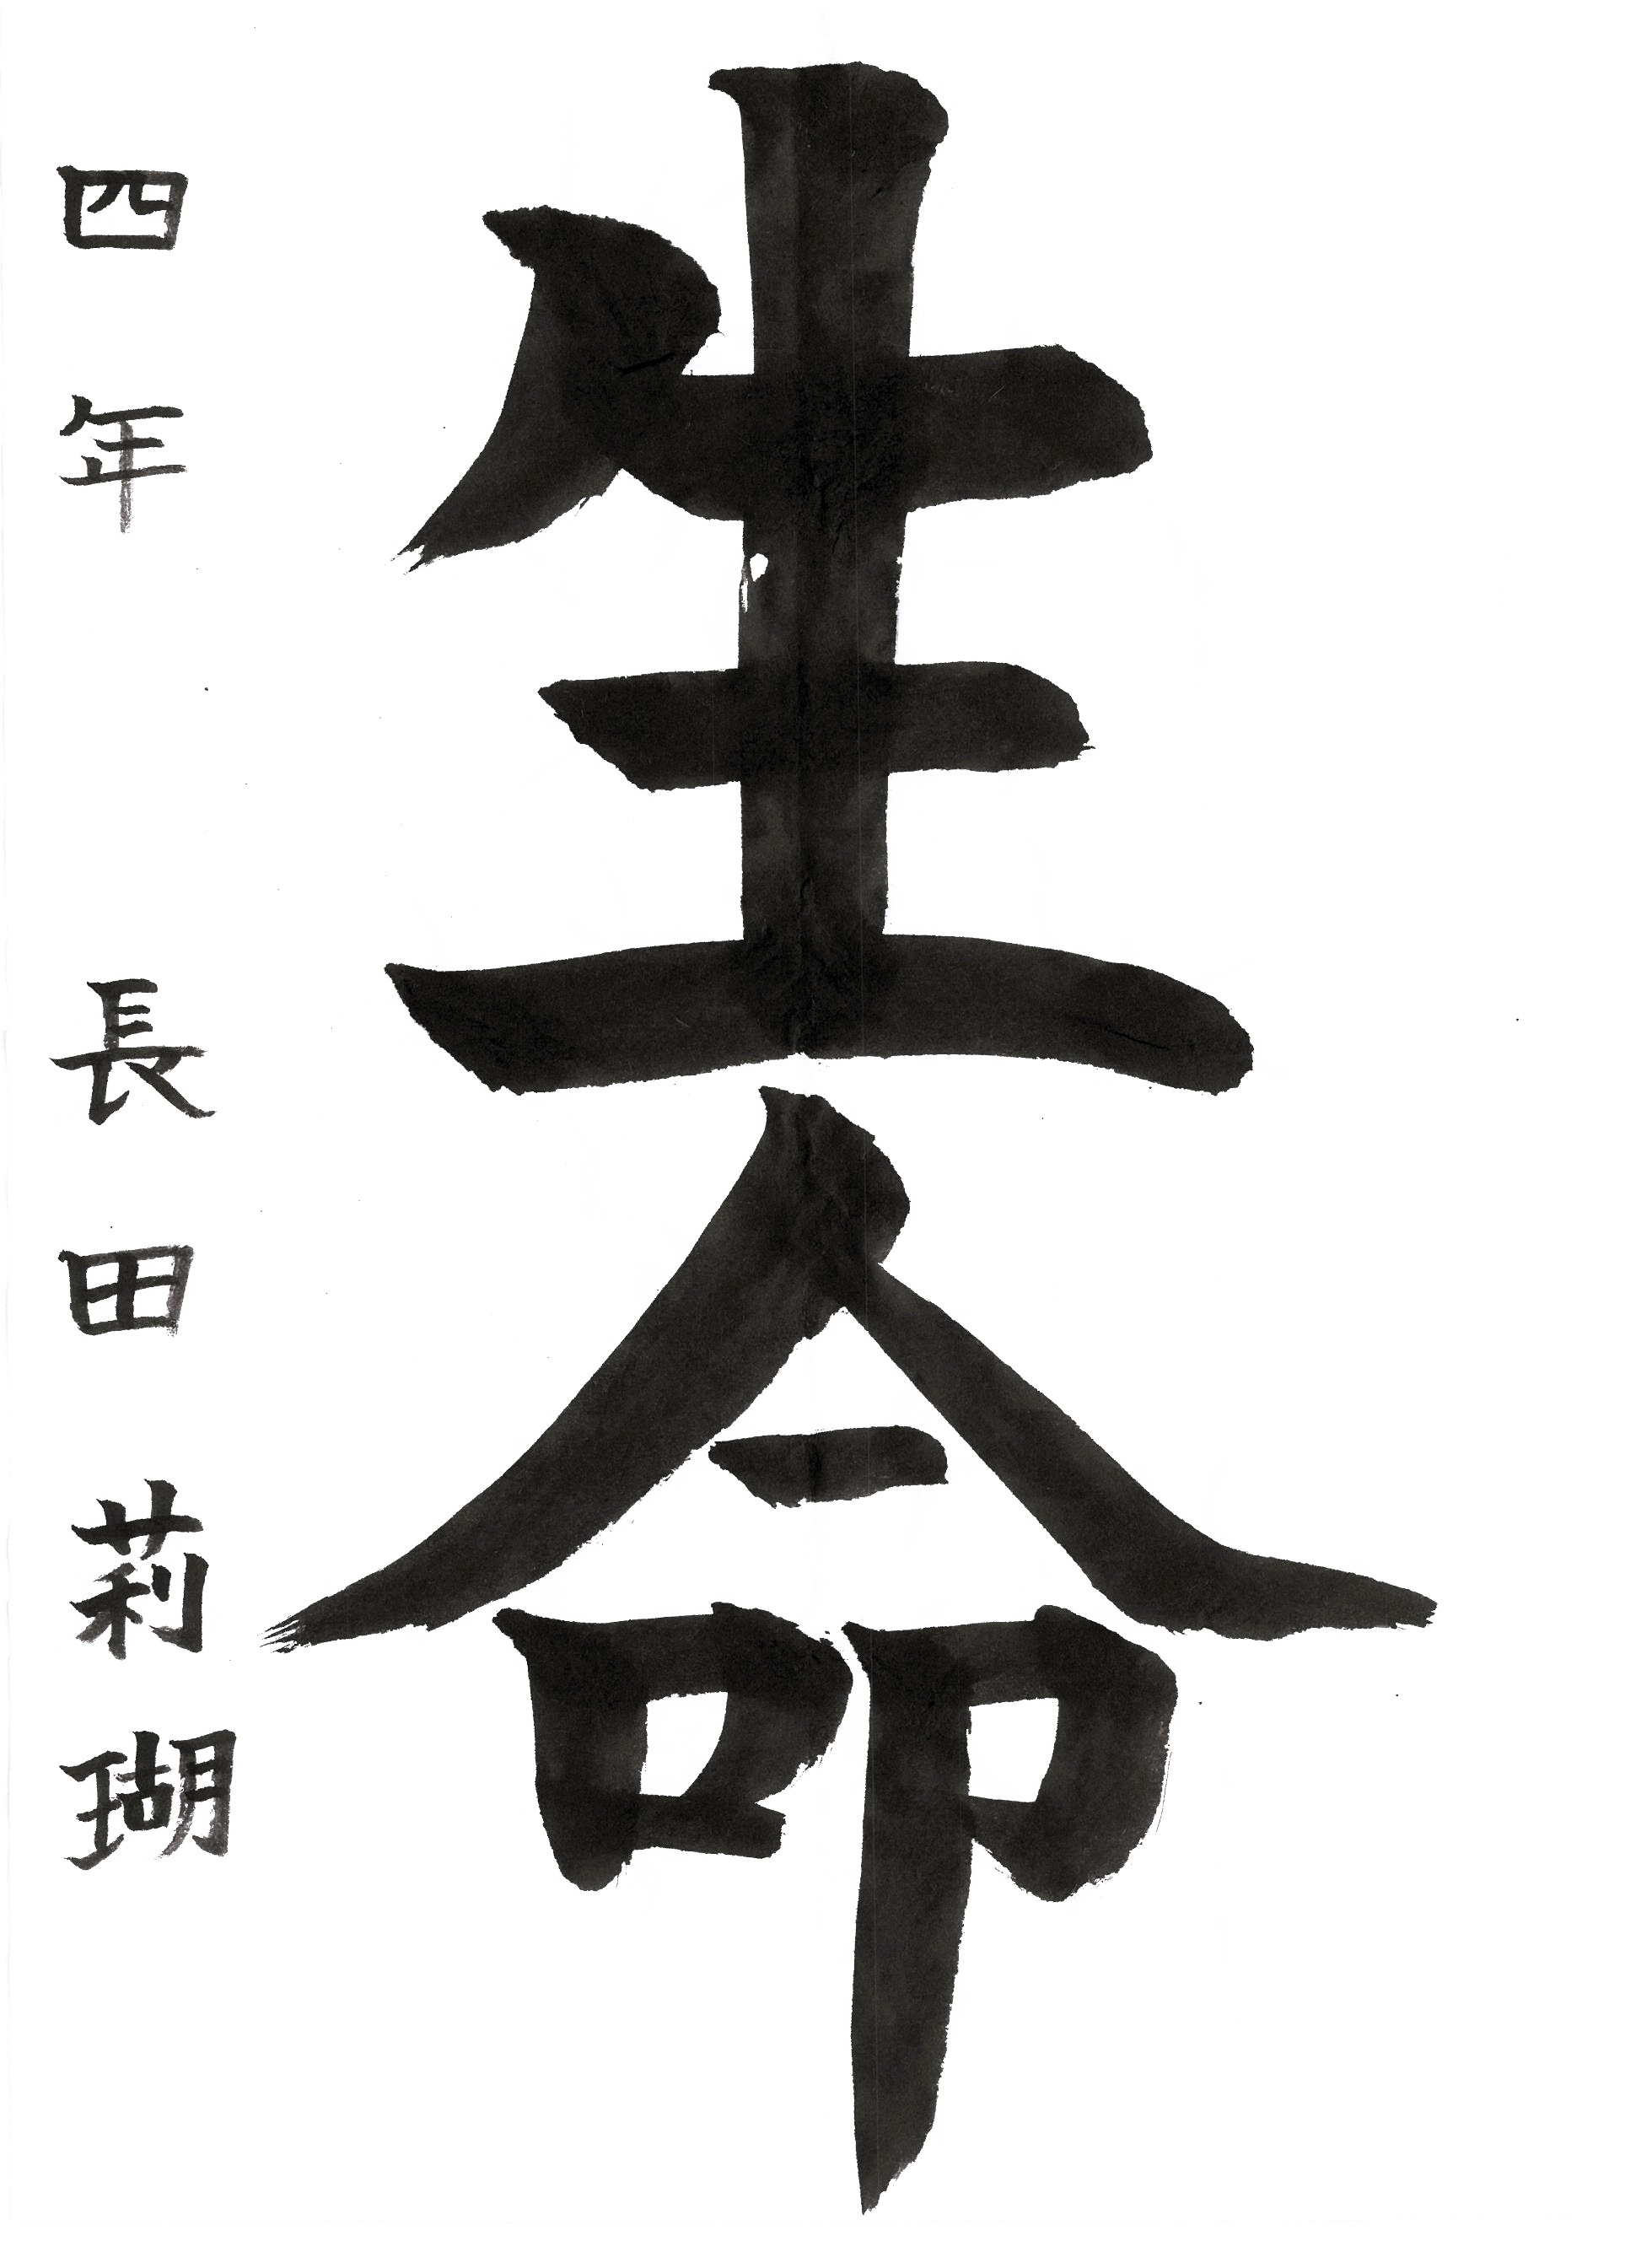 生命
四年 長田莉瑚